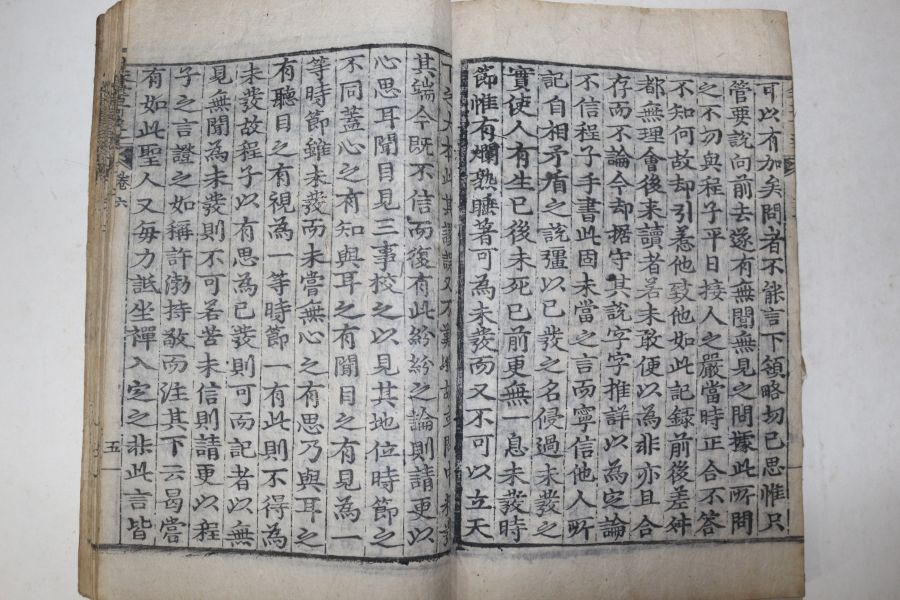 可以有加矣問者不能言下領略切己思惟只
管要說向前去遂有無聞無見之問據此所問
之不切與程子平日接人之嚴當時正合不答
不知何故却引惹他致他如此記録前後差舛
都無理會後来讀者若未敢便以為非亦且合
存而不論今却据守其說字字推詳以為定論
不信程子手書此固未當之言而寧信他人所
記自相矛盾之說彊以已發之名侵過未發之
實使人有生已後未死已前更無一息未發時
節惟有爛熟睡著可為未發而又不可以立天
下之大本此其謬誤又不難
其端今既不信而復有此紛紛之論則請更以
心思耳聞目見三事校之以見其地位時節之
不同蓋心之有知與耳之有聞目之有見為一
等時節雖未發而未嘗無心之有思乃與耳之
有聽目之有視為一等時節一有此則不得為
未發故程子以有思為已發則可而記者以無
見無聞為未發則不可若苦未信則請更以程
子之言證之如稱許渤持敬而注其下云曷嘗
有如此聖人又每力詆坐禪入定之非此言皆
卷六
五